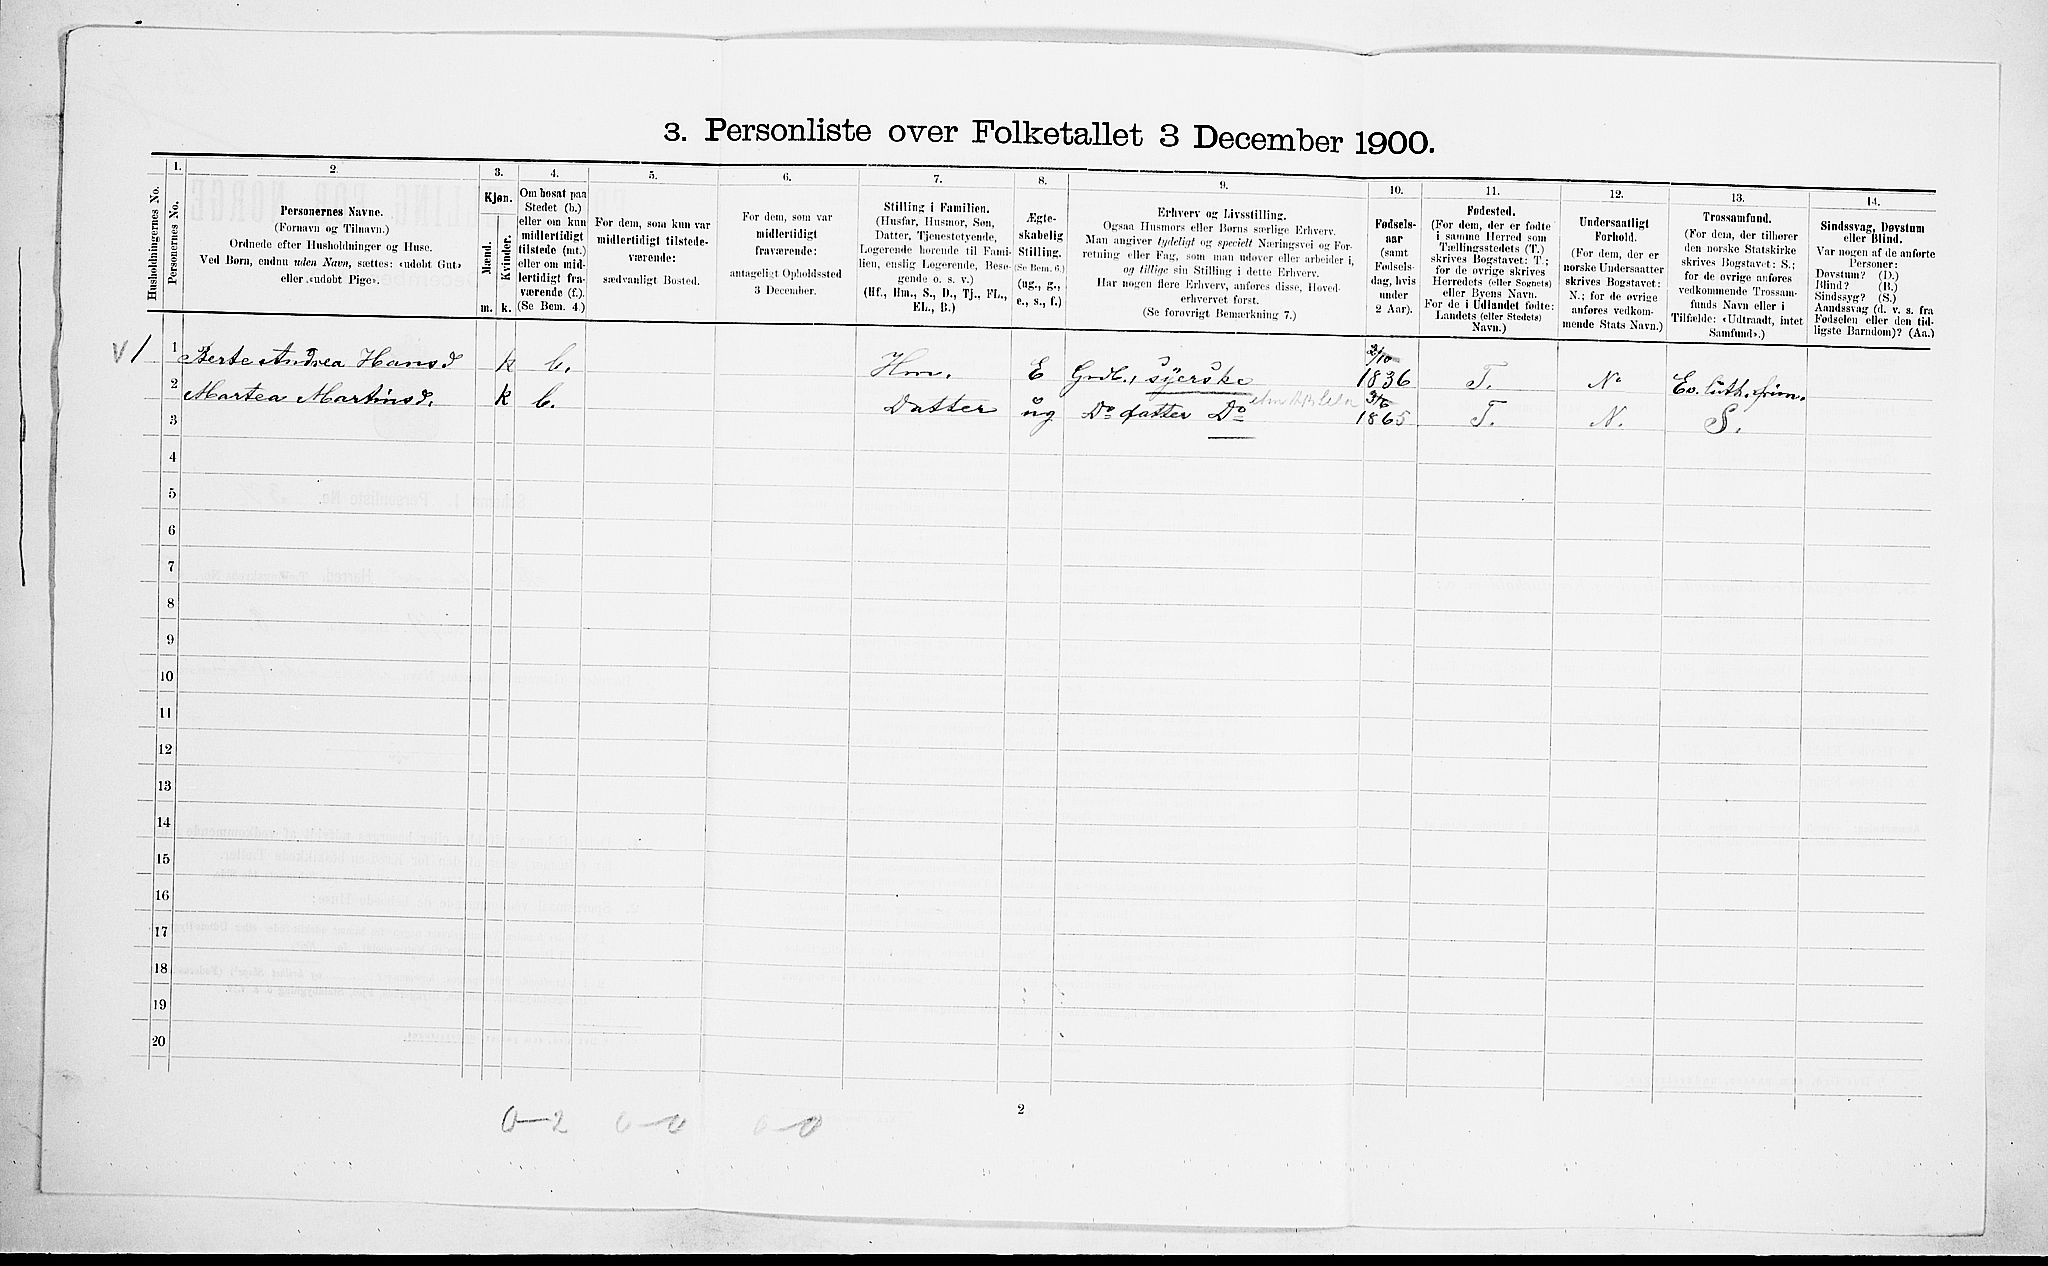 3. Personliste over Folketallet 3 December 1900.
Husholdningernes No.
1.
Personernes No.
2.
Personernes Navne.
(Fornavn og Tilnavn.)
Ordnede efter Husholdninger og Huse.
Ved Børn, endnu uden Navn, sættes: «udøbt Gut»
eller «udøbt Pige».
3.
Kjøn.
Mænd.
Kvinder.
m. k.
4.
Om bosat paa
Stedet (b.)
eller om kun
midlertidigt
tilstede (mt.)
eller om mid-
lertidigt fra-
værende (f.).
(Se Bem. 4.)
5.
For dem, som kun var
midlertidigt tilstede-
værende:
sædvanligt Bosted.
6.
For dem, som var
midlertidigt
fraværende:
antageligt Opholdssted
3 December.
7.
Stilling i Familien.
(Husfar, Husmor, Søn,
Datter, Tjenestetyende,
Logerende hørende til Fami-
lien, enslig Logerende, Besø-
gende o. s. v.)
(Hf., Hm., S., D., Tj., FL.,
EL., B.)
8.
Ægte-
skabelig
Stilling.
(Se Bem. 6.)
(ug., g.,
e., s., f.)
9.
Erhverv og Livsstilling.
Ogsaa Husmors eller Børns særlige Erhverv.
Man angiver tydeligt og specielt Næringsvei og For-
retning eller Fag, som man udøver eller arbeider i,
og tillige sin Stilling i dette Erhverv.
Har nogen flere Erhverv, anføres disse, Hoved-
erhvervet først.
(Se forøvrigt Bemærkning 7.)
10.
Fødsels-
aar
(samt
Fødsels-
dag, hvis
under
2 Aar).
11.
Fødested.
(For dem, der er fødte
i samme Herred som
Tællingsstedets (T.)
skrives Bogstavet: T.;
for de øvrige skrives
Herredets (eller Sognets)
eller Byens Navn.
For de i Udlandet fødte:
Landets (eller Stedets)
Navn.)
12.
Undersaatligt
Forhold.
(For dem, der er
norske Undersaatter
skrives Bogstavet:
N.; for de øvrige
anføres vedkom-
mende Stats Navn.)
13.
Trossamfund.
(For dem, der tilhører
den norske Statskirke
skrives Bogstavet: S.;
for de øvrige anføres
vedkommende Trossam-
funds Navn eller i
Tilfælde: «Udtraadt, intet
Samfund».)
14.
Sindssvag, Døvstum
eller Blind.
Var nogen af de anførte
Personer:
Døvstum? (D.)
Blind? (B.)
Sindssyg? (S.)
Aandssvag (d. v. s. fra
Fødselen eller den tid-
ligste Barndom)? (Aa.)
V 1 1 Berte Andrea Hansd k b. Hm. E Grdb., syerske 2/10 1836 T. N. Ev. luth. frim.
2 Martea Martinsd. k b. Datter ug Do datter Do 3/6 1865 T. N. S.
3
4
5
6
7
8
9
10
11
12
13
14
15
16
17
18
19
20
2
0-2 0-0 0-0